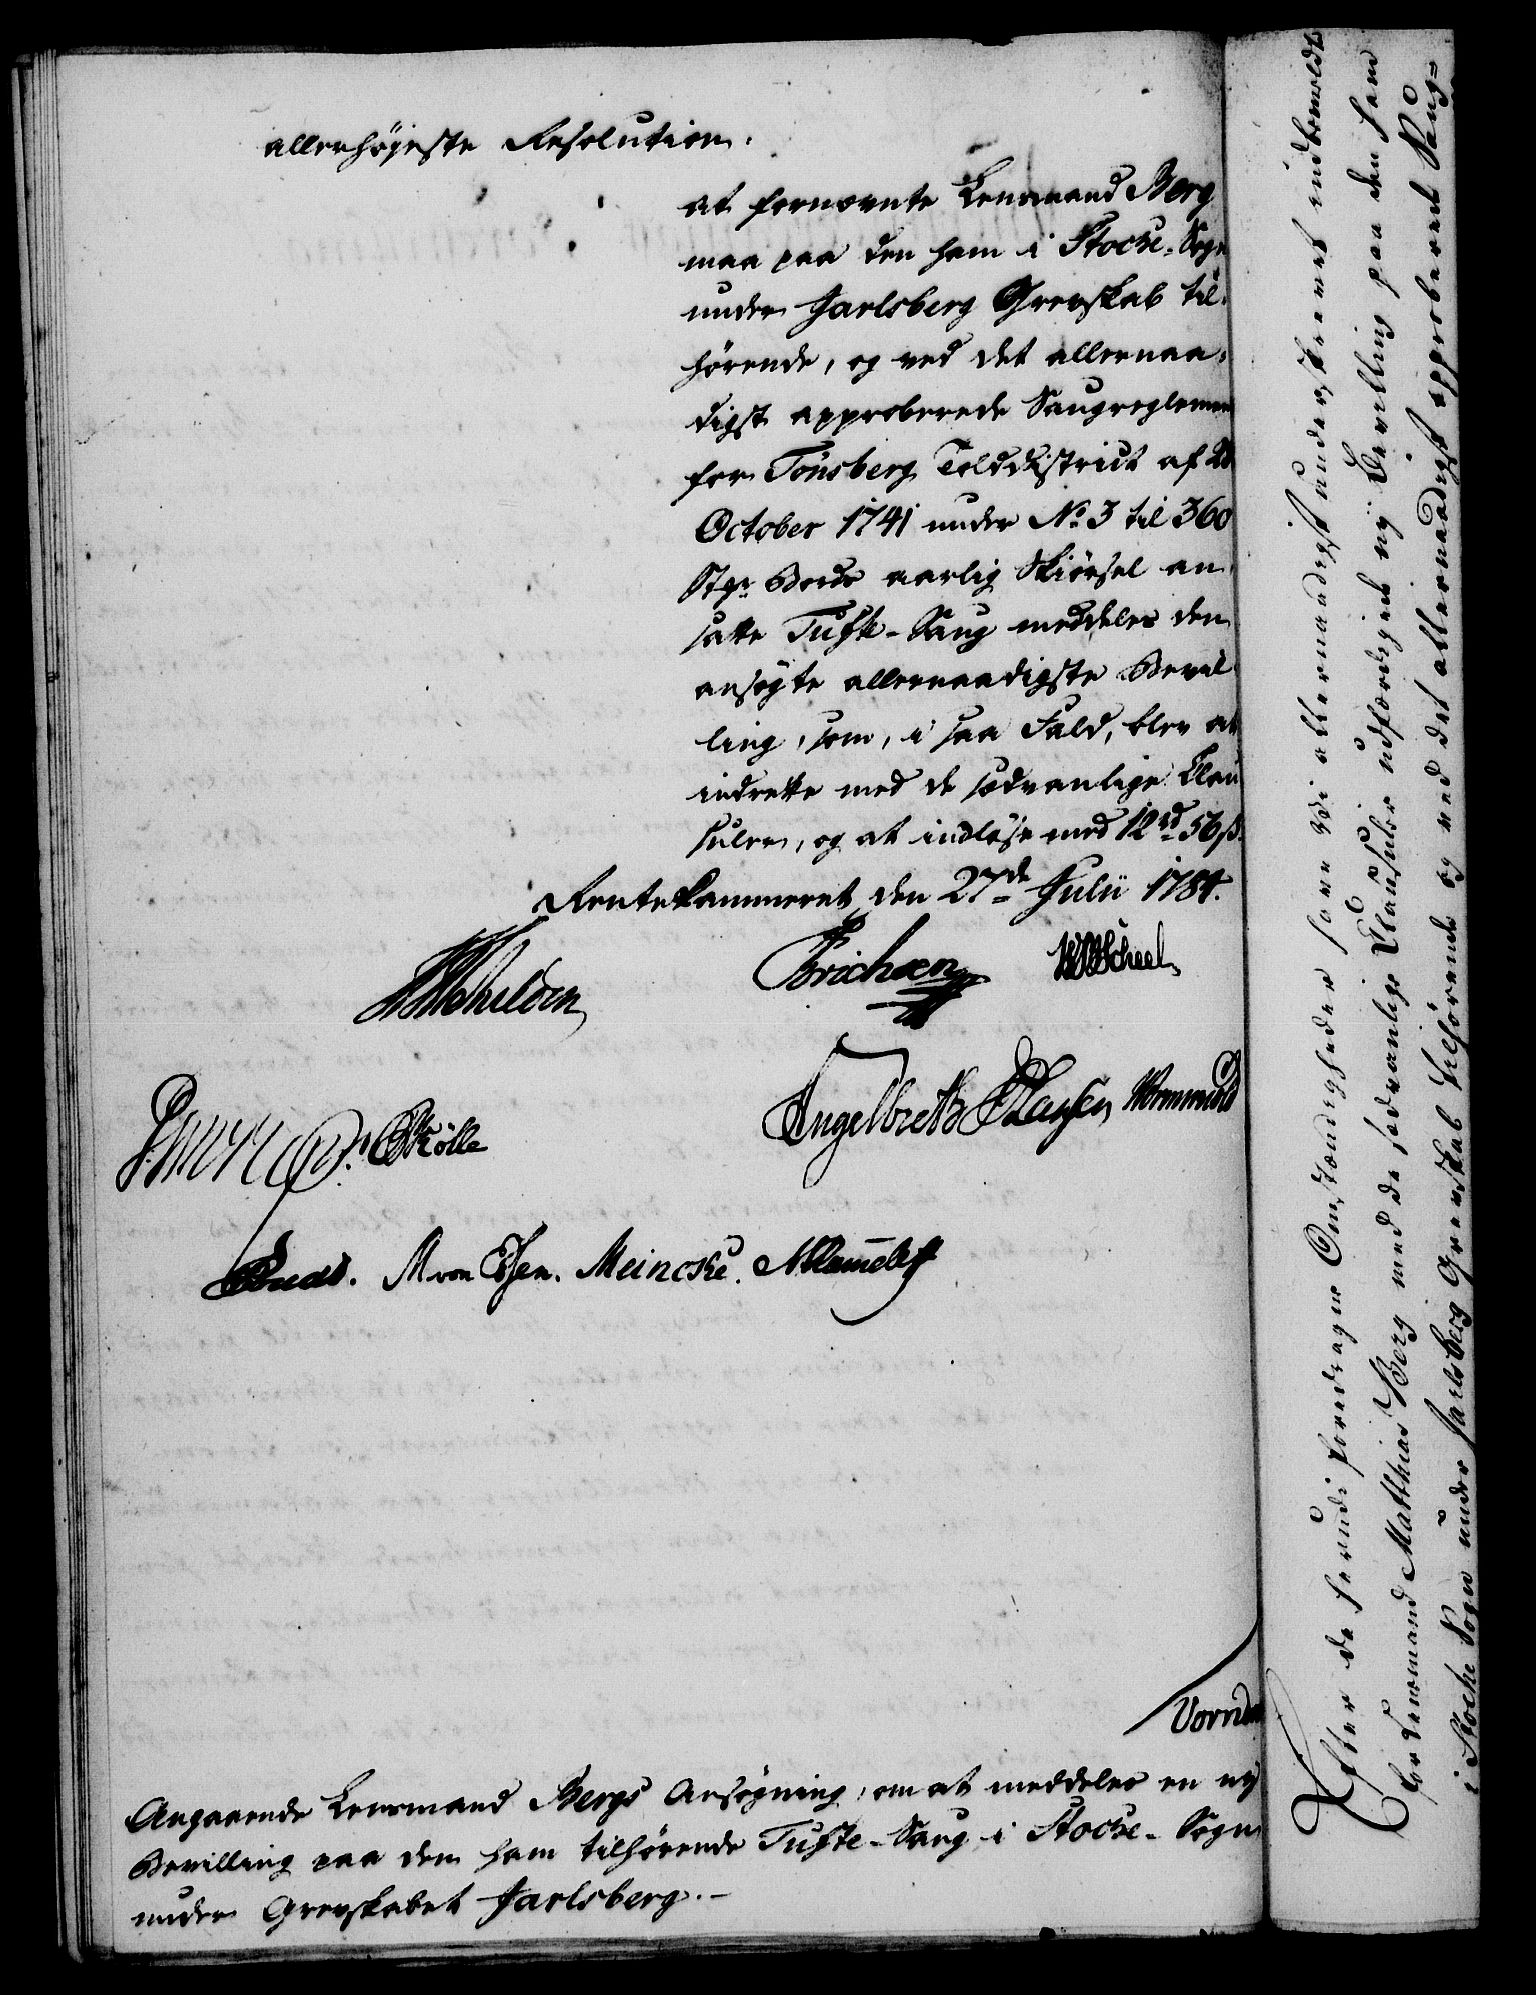 allerhøyeste Resolution:
at fornævnte Lensmand Berg
maa paa den ham i Stocke-Sogn
under Jarlsberg Grevskab til-
hørende, og ved det allernaa-
digst approberede Saugreglement
for Tönsberg Tolddistrict af
October 1741 under No. 3 til 360
Stpr Bords aarlig Skiørsel an-
satte Tufte-Saug meddeles den
ansøgte allernaadigste Bevil-
ling, som, i saa Fald, blev at
indrette med de sædvanlige Clau-
suler, og at indløse med 12rd 56ß.
Rentekammeret den 27de Julii 1784.
Erichsen WScheel
Engelbreth Wormskiold
Skølle
M von Essen. Meincke.
Angaaende Lensmand Bergs Ansøgning, om at meddeles en ny
Bevilling paa den ham tilhørende Tufte-Saug i Stocke-Sogn
under Grevskabet Jarlsberg.-
Efter de herudi foredragne Omstændigheder have Vi allernaadigst underskrevet indbemeldte
for Lensmand Matthias Berg med de sædvanlige Clausuler udfærdigede ny Bevilling paa den ham
i Stocke Sogn under Jarlsberg Grevskab tilhørende og ved det allernaadigst approberede Saug=